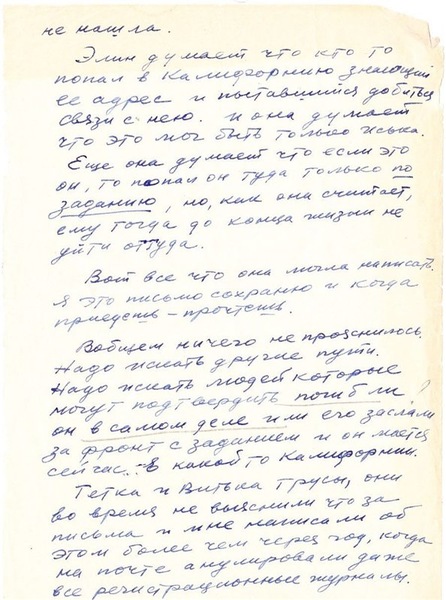 не нашла.
Элин думает что кто то
попал в Калифорнию знающий
ее адрес и пытавшийся добиться
связи с нею. и она думает
что это мог быть только Иська.
Еще она думает что если это
он, то попал он туда только по
заданию, но, как она считает,
ему тогда до конца жизни не
уйти оттуда.
Вот все что она могла написать.
Я это письмо сохраню и когда
приедешь – прочтешь.
Вобщем ничего не прояснилось.
Надо искать другие пути.
Надо искать людей которые
могут подтвердить погиб ли
он в самом деле или его заслали
за фронт с заданием и он мается
сейчас в какой то Калифорнии.
Тетка и Витька трусы, они
во время не выяснили что за
письма и мне написали об
этом более чем через год, когда
на почте анулировали даже
все регистрационные журналы.